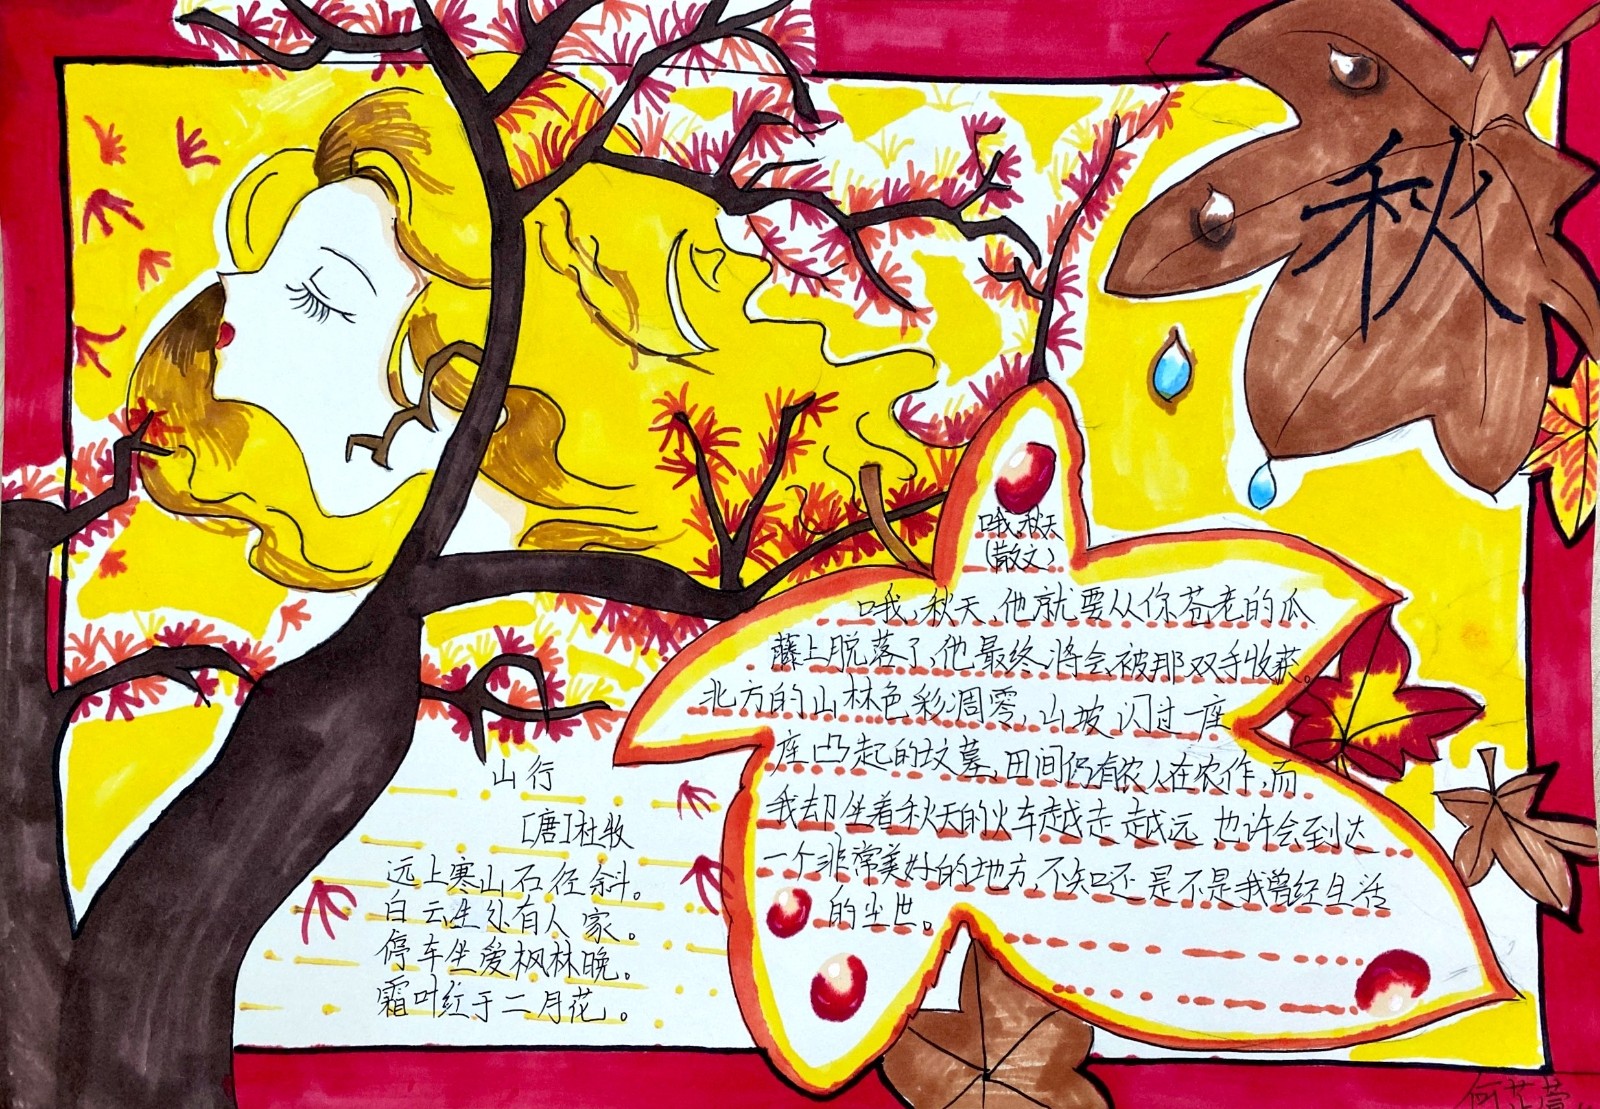 秋
哦,秋天
(散文)
哦,秋天,他就要从你苍老的瓜
藤上脱落了,他最终,将会,被那双手收获。
北方的山林色彩凋零,山坡闪过一座
座凸起的坟墓,田间仍有农人在农作,而
我却坐着秋天的火车越走越远,也许会到达
一个非常美好的地方,不知还是不是我曾经生活
的尘世。
山行
[唐]杜牧
远上寒山石径斜。
白云生处有人家。
停车坐爱枫林晚。
霜叶红于二月花。